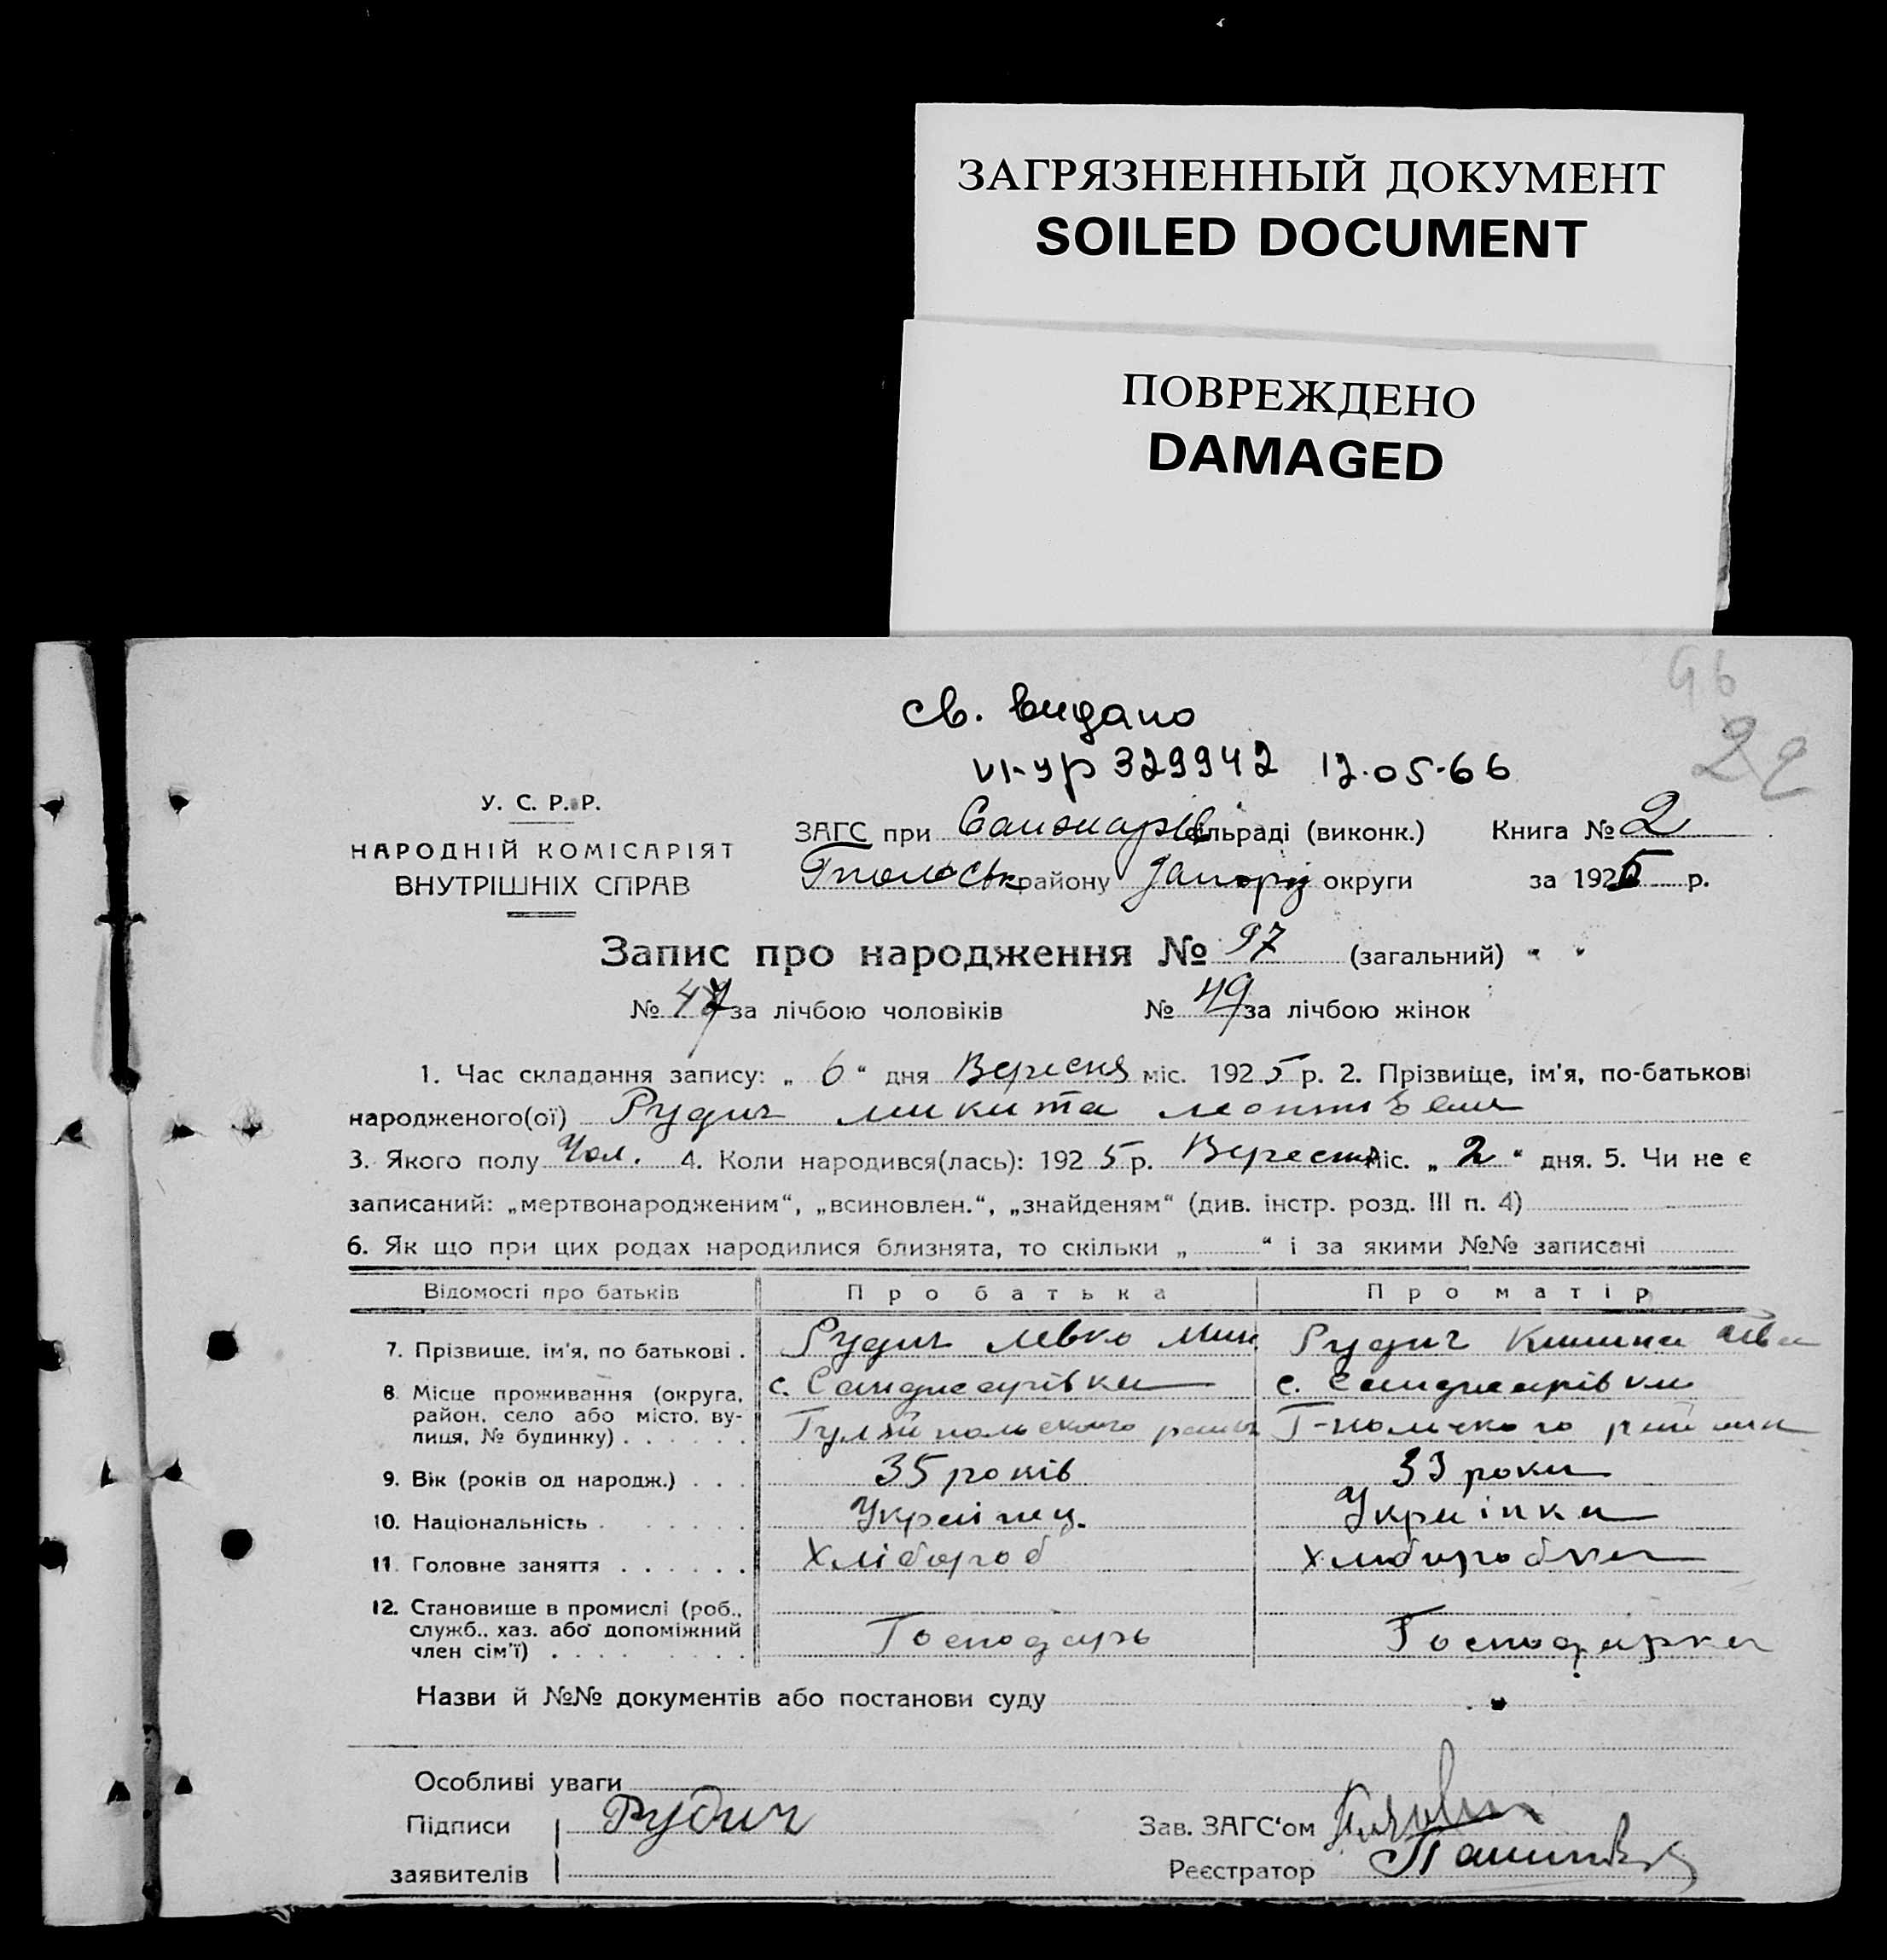 ЗАГРЯЗНЕННЫЙ ДОКУМЕНТ
SOILED DOCUMENT
ПОВРЕЖДЕНО
DAMAGED
св. видано
VI-УР 329942 12.05.66
22
У. С. Р. Р.
НАРОДНІЙ КОМІСАРІЯТ
ВНУТРІШНІХ СПРАВ
ЗАГС при сільраді (виконк.) Книга № 2
району Запоріз округи за 1925 р.
Запис про народження № 97 (загальний)
№ 47 за лічбою чоловіків № 49 за лічбою жінок
1. Час складання запису: „ 6 “ дня Вересня міс. 1925 р. 2. Прізвище, ім'я, по-батькові
народженого(ої) Рудич Микита
3. Якого полу Чол. 4. Коли народився(лась): 1925 р. Вересня міс. „ 2 “ дня. 5. Чи не є
записаний: „мертвонародженим“, „всиновлен.“, „знайденям“ (див. інстр. розд. III п. 4)
6. Як що при цих родах народилися близнята, то скільки „ “ і за якими №№ записані
Відомості про батьків Про батька Про матір
7. Прізвище, ім'я, по батькові . Рудич Левко Мик. Рудич
8. Місце проживання (округа, район, село або місто, вулиця, № будинку) . . . . . . с. Санжарівка с. Санжарівка
Гуляйпольского району Г-польского району
9. Вік (років од народж.) . . . 35 років 33 роки
10. Національність . . . . . . Українец. Українка
11. Головне заняття . . . . . . Хлібороб Хліборобка
12. Становище в промислі (роб., служб., хаз. або допоміжний член сім'ї) . . . . . . . . Господарь Господарка
Назви й №№ документів або постанови суду
Особливі уваги
Підписи заявителів Рудич
Зав. ЗАГС'ом
Реєстратор